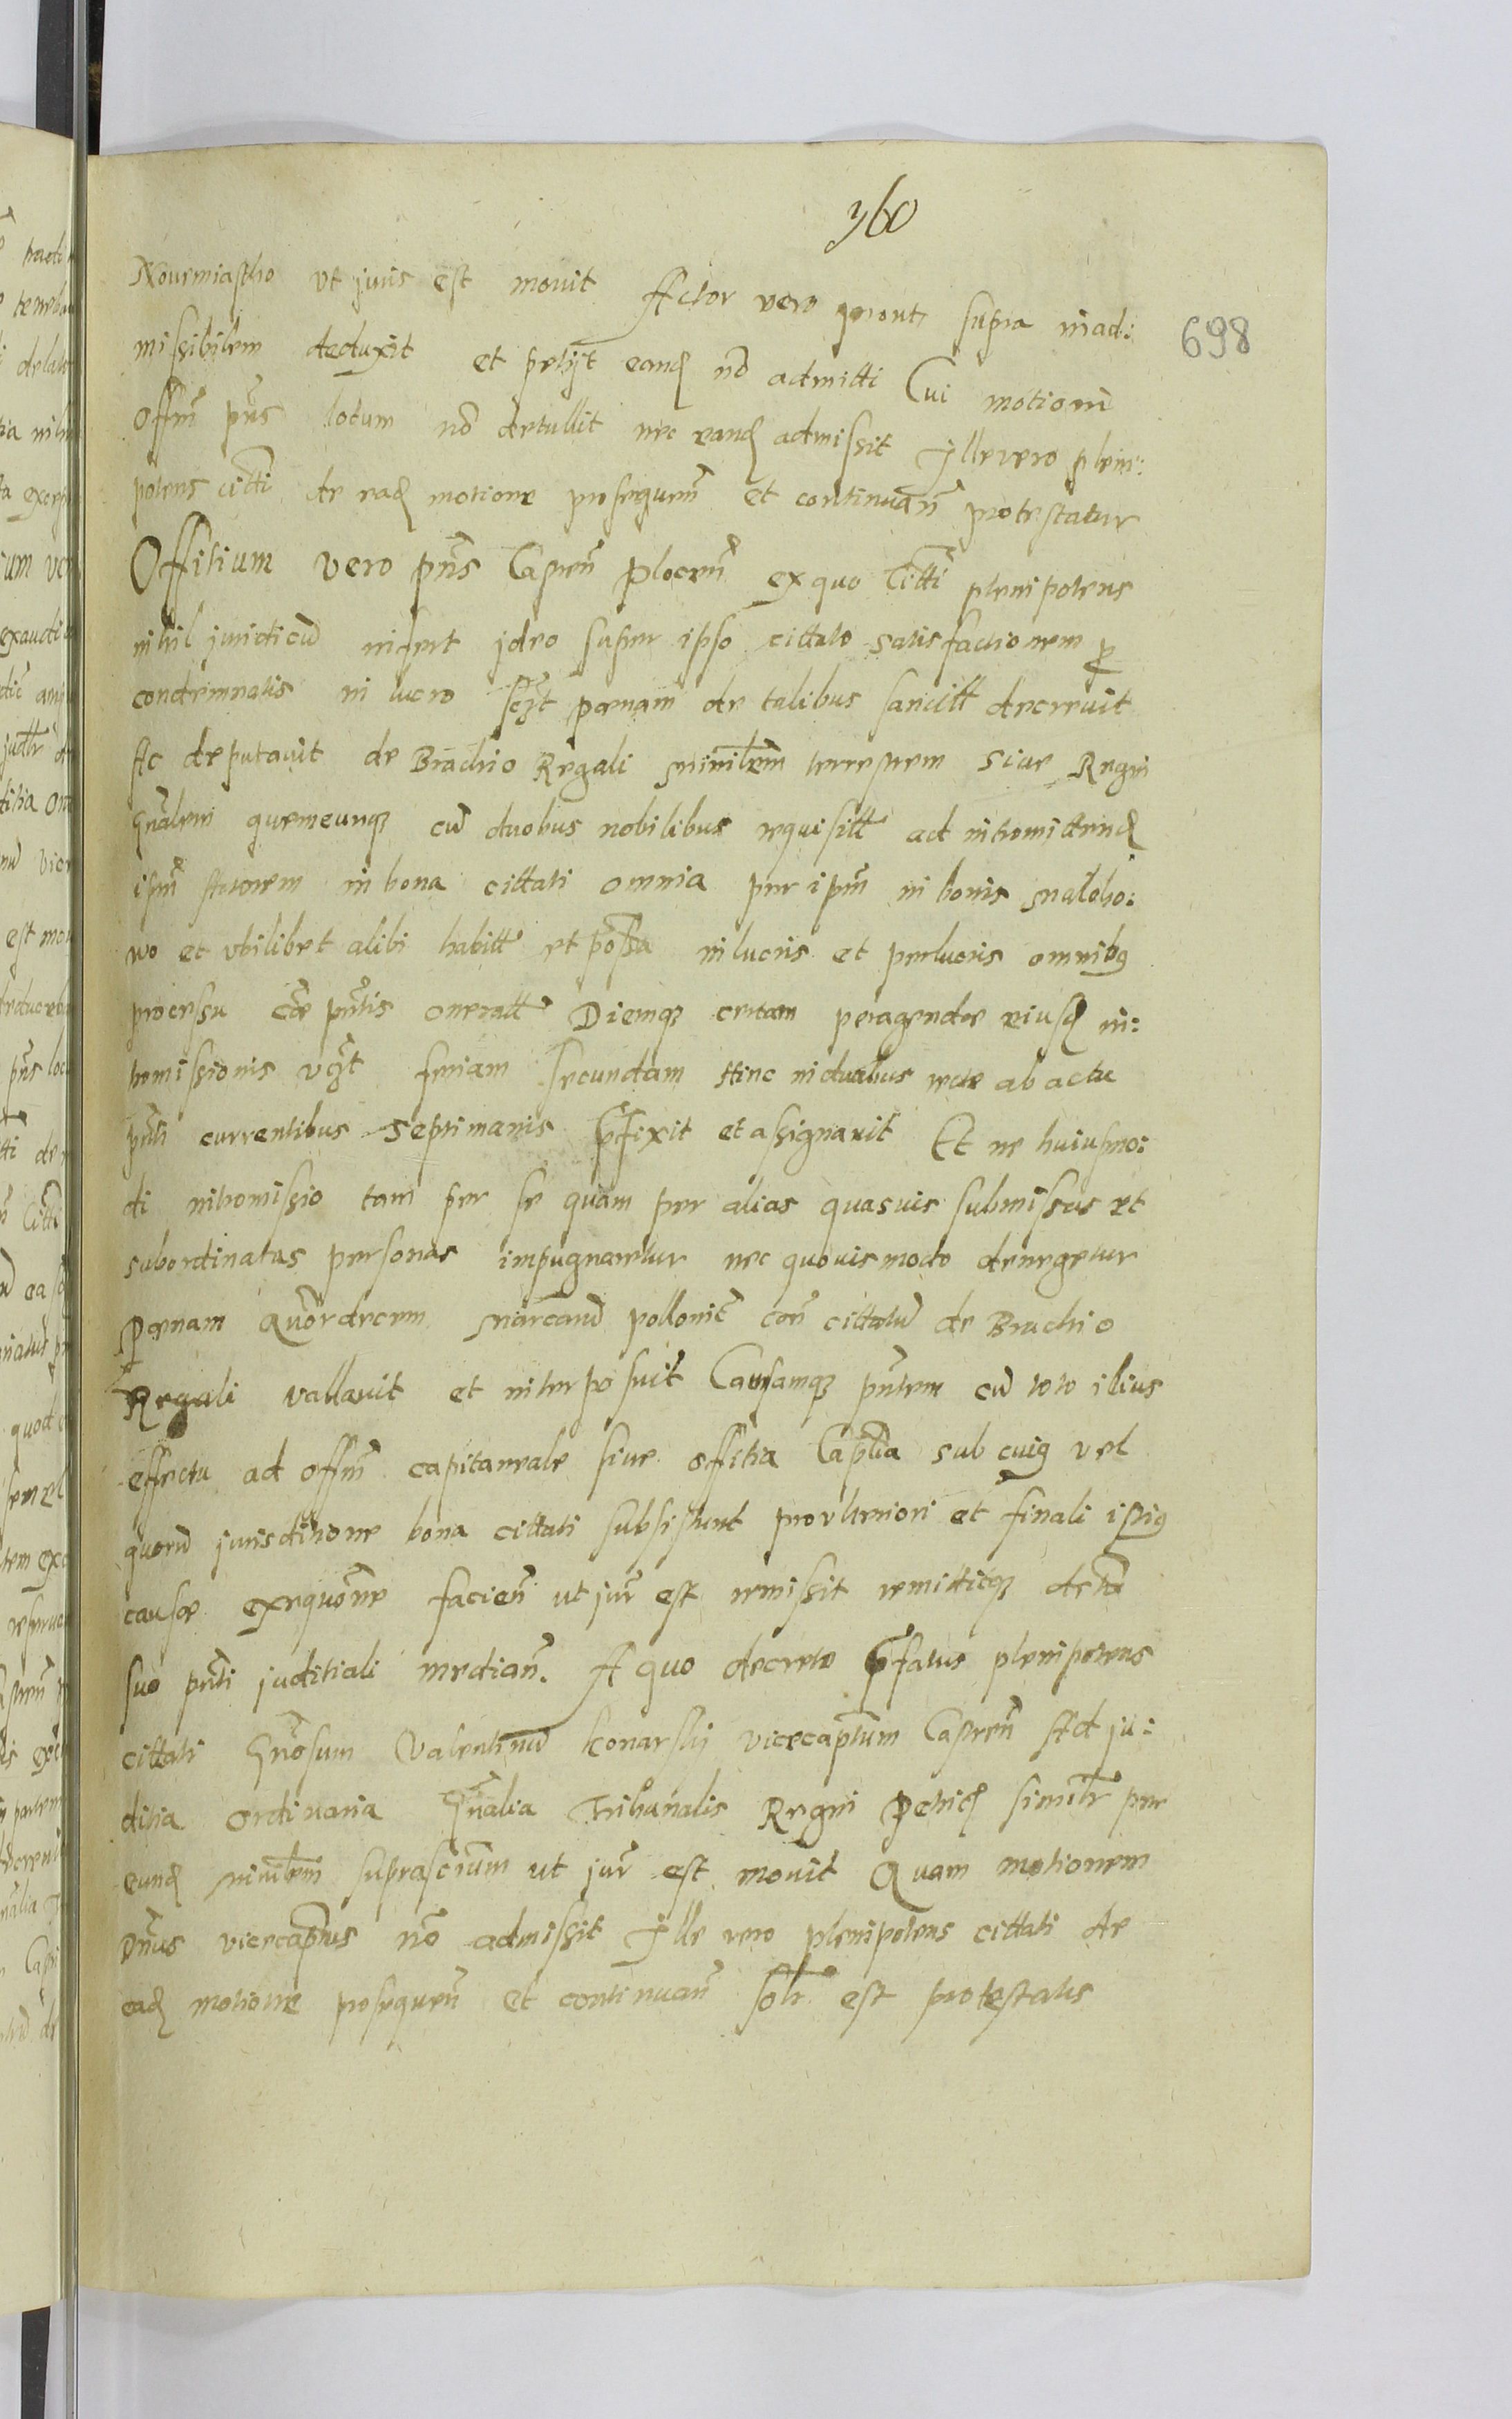 360
698
Nouemiastho ut juris est mouit Actor vero prout supra inad:
missibilem deduxit et petijt eand no admitti Cui motioni
Offm pns locum no detullit nec eand admissit Ille vero pleni:
potens citti de ead motione prosequen et continuan protestatur
Offitium vero pns Castren Plocen ex quo Citti plenipotens
nihil juridicu infert ideo super ipso cittato satisfactionem p
condemnatis in lucro sczt pœnam de talibus sancitt decrevit
Ac deputauit de Brachio Regali minilem terrestrem siue Regni
Gnalem quemcunq cu duobus nobilibus requisitt ad intromittend
ipm Actorem in bona cittati omnia per ipm in bonis
wo et ubilibet alibi habitt et possa in lucris et perlucris omnibq
processu cae pntis oneratt Diemq certam peragendae eiusd in:
tromissionis vczt feriam secundam hinc in duabus recte ab actu
pnti currentibus septimanis pfixit et assignavit Et ne huiusmo:
di intromissio tam per se quam per alias quasuis submissas et
subordinatas personas impugnaretur nec quouismodo denegetur
Pœnam quordecem marcaru pollonic con cittatu de Brachio
Regali vallauit et interposuit Causamq pntem cu toto illius
effectu ad offm capitaneale siue offitia Caplia sub cuiq vel
quoru jurisditione bona cittati subsistunt pro ulteriori et finali istiq
causæ exequone facien ut jur est remissit remittitq decto
suo pnti juditiali median. A quo decreto pfatus plenipotens
cittati Gnosum Valentinu Konarskj vicecaptum Castren Ad ju:
ditia ordinaria Gnalia Tribunalis Regni Petric simitr per
eund minilem suprascrium ut jur est mouit Quam motionem
Dnus vicecaptnus no admissit Ille vero plenipotens cittati de
ead motione prosequen et continuan soltr est protestatus